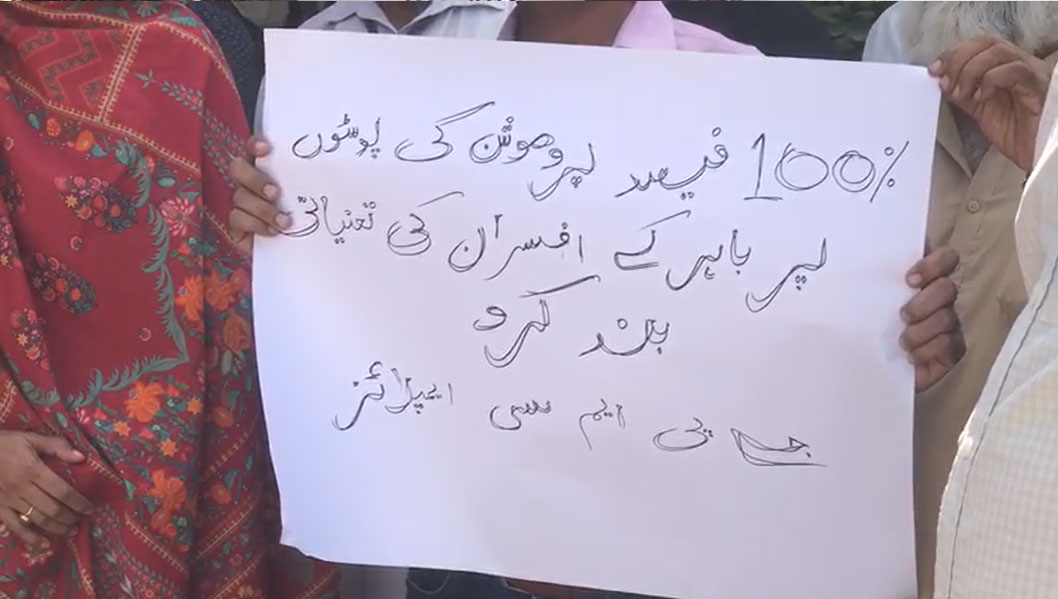 100% فیصد پروموشن کی پوسٹوں
پر باہر کے افسران کی تعنیاتی
بند کرو
جے پی ایم سی ایمپلائز